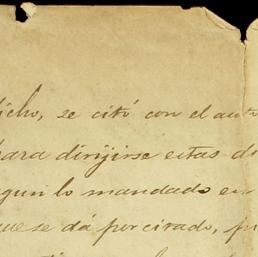 icho, se citó con el auto
para dirijirse estas di
egun lo mandado en
que se dá por cirado, pu